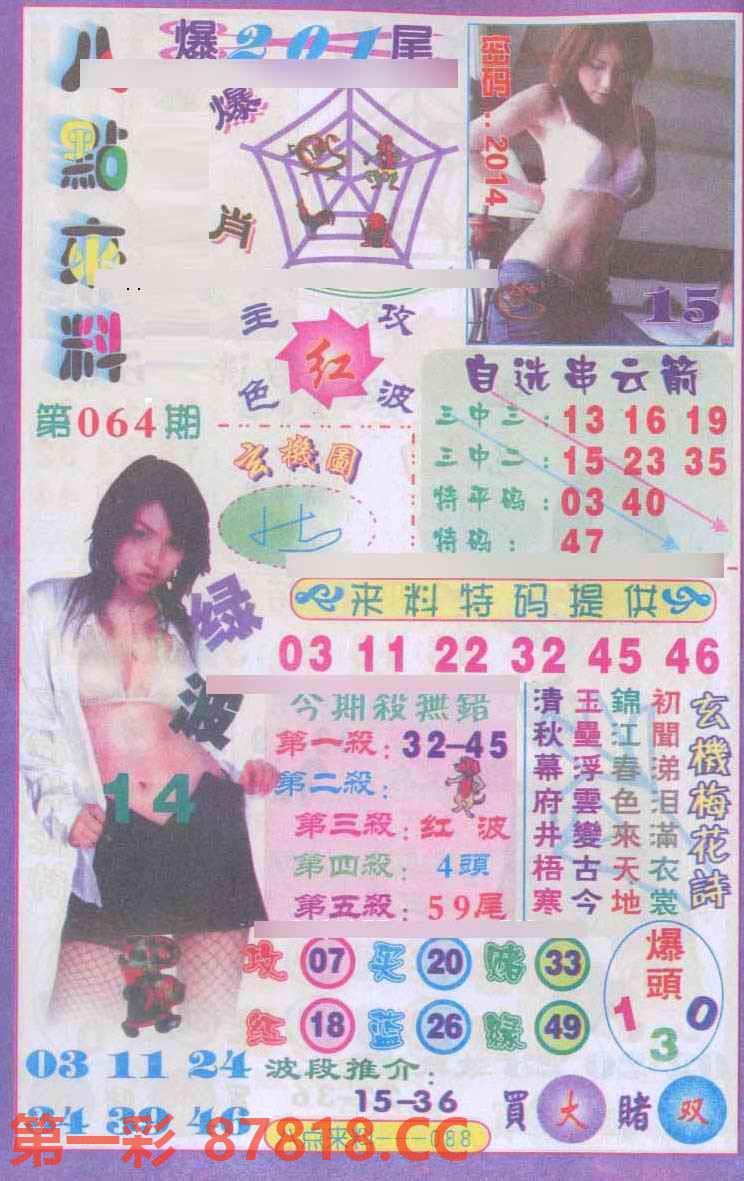 八點來料
爆201尾
爆肖
密码:2014
15
主攻
红
色波
第064期
玄機圖
自选串云箭
三中三:13 16 19
三中二:15 23 35
特平码:03 40
特码:47
来料特码提供
03 11 22 32 45 46
绿波
14
今期殺無錯
第一殺:32-45
第二殺:
第三殺:红波
第四殺:4頭
第五殺:59尾
玄機梅花詩
初聞涕泪滿衣裳
錦江春色來天地
玉壘浮雲變古今
清秋幕府井梧寒
攻 07 买 20 赌 33
红 18 蓝 26 緣 49
爆頭
1 3 0
03 11 24
34 39 46
波段推介:
15-36
買大賭双
点来料---088
第一彩 87818.CC